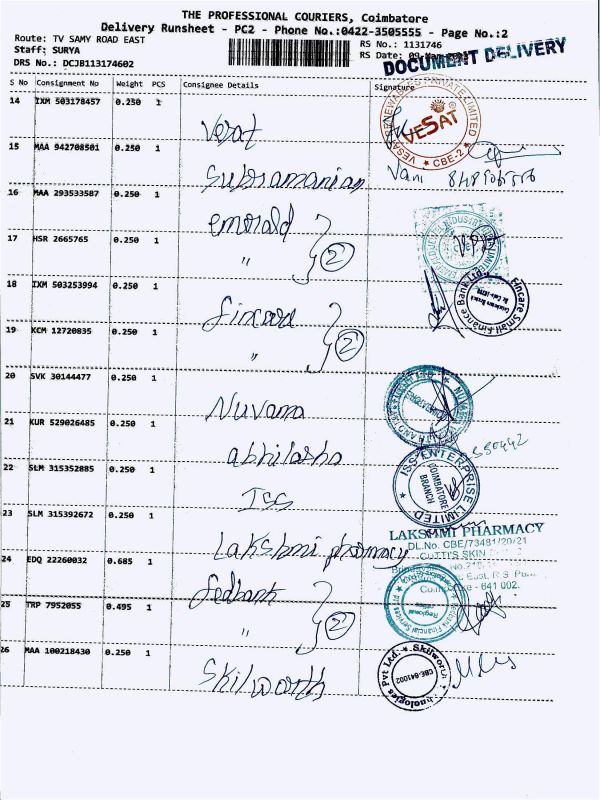 THE PROFESSIONAL COURIERS, Coimbatore
Delivery Runsheet - PC2 - Phone No.:0422-3505555 - Page No.:2
Route: TV SAMY ROAD EAST
RS No.: 1131746
Staff: SURYA
RS Date: 09-
DOCUMENT DELIVERY
DRS No.: DCJB113174602
S No Consignment No Weight PCS Consignee Details Signature
14 IXM 503178457 0.250 1 Vesat
VESAT
CBE-2
15 MAA 942708501 0.250 1 Subramanian
Vani
16 MAA 293533587 0.250 1 emerald
17 HSR 2665765 0.250 1 " 2
18 IXM 503253994 0.250 1 fincare
Fincare Small Finance Bank Ltd.
19 KCM 12720835 0.250 1 " 2
20 SVK 30144477 0.250 1 Nuvama
21 KUR 529026485 0.250 1 abhilasha
550442
22 SLM 315352885 0.250 1 ISS
ISS ENTERPRISE LIMITED
COIMBATORE
BRANCH
23 SLM 315392672 0.250 1 Lakshmi pharmacy
LAKSHMI PHARMACY
DL.No. CBE/73481/20/21
CUTTI'S SKIN
East, R.S. Puram
- 641 002.
24 EDQ 22260032 0.685 1 fedbank
25 TRP 7952055 0.495 1 " 2
Financial Services
Regional
26 MAA 100218430 0.250 1 Skilworth
Skilworth
CBE-641002
Pvt Ltd.